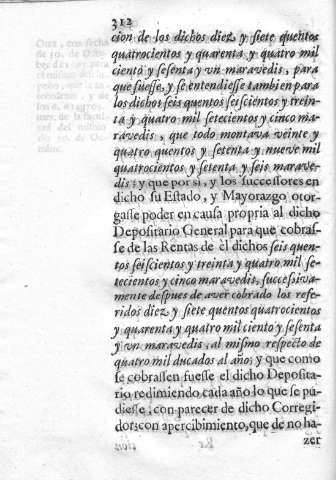 312
cion de los dichos diez y siete quentos
quatrocientos y quarenta y quatro mil
ciento y sesenta y vn maravedis, para
que fuesse, y se entendiesse tambien para
los dichos seis quentos seiscientos y trein-
ta y quatro mil setecientos y cinco ma-
ravedis, que todo montava veinte y
quatro quentos y setenta y nueve mil
quatrocientos y setenta y seis marave-
dis: y que por sì, y los successores en
dicho su Estado, y Mayorazgo otor-
gasse poder en causa propria al dicho
Depositario General para que cobras-
se de las Rentas de èl dichos seis quen-
tos seiscientos y treinta y quatro mil se-
tecientos y cinco maravedis, successiva-
mente despues de aver cobrado los refe-
ridos diez y siete quentos quatrocientos
y quarenta y quatro mil ciento y sesenta
y vn maravedis, al mismo respecto de
quatro mil ducados al año; y que como
se cobrassen fuesse el dicho Deposita-
rio redimiendo cada año lo que se pu-
diesse, con parecer de dicho Corregi-
dor: con apercibimiento, que de no ha-
zer